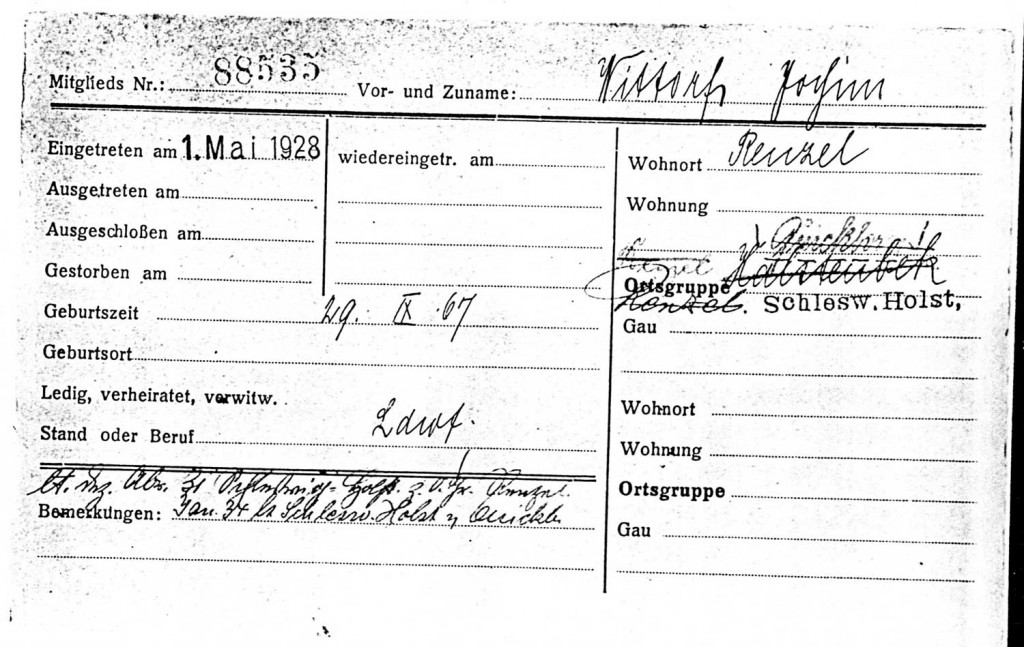 Mitglieds Nr.: 88535 Vor- und Zuname: Wittorf, Jochim
Eingetreten am 1. Mai 1928
Ausgetreten am
Ausgeschloßen am
Gestorben am
wiedereingetr. am
Geburtszeit 29. IX. 67
Geburtsort
Ledig, verheiratet, verwitw.
Stand oder Beruf Ldwt.
Bemerkungen: Jan. 34 Schlesw. Holst
Wohnort Renzel
Wohnung
Halstenbek
Ortsgruppe
Renzel. Schlesw. Holst,
Gau
Wohnort
Wohnung
Ortsgruppe
Gau